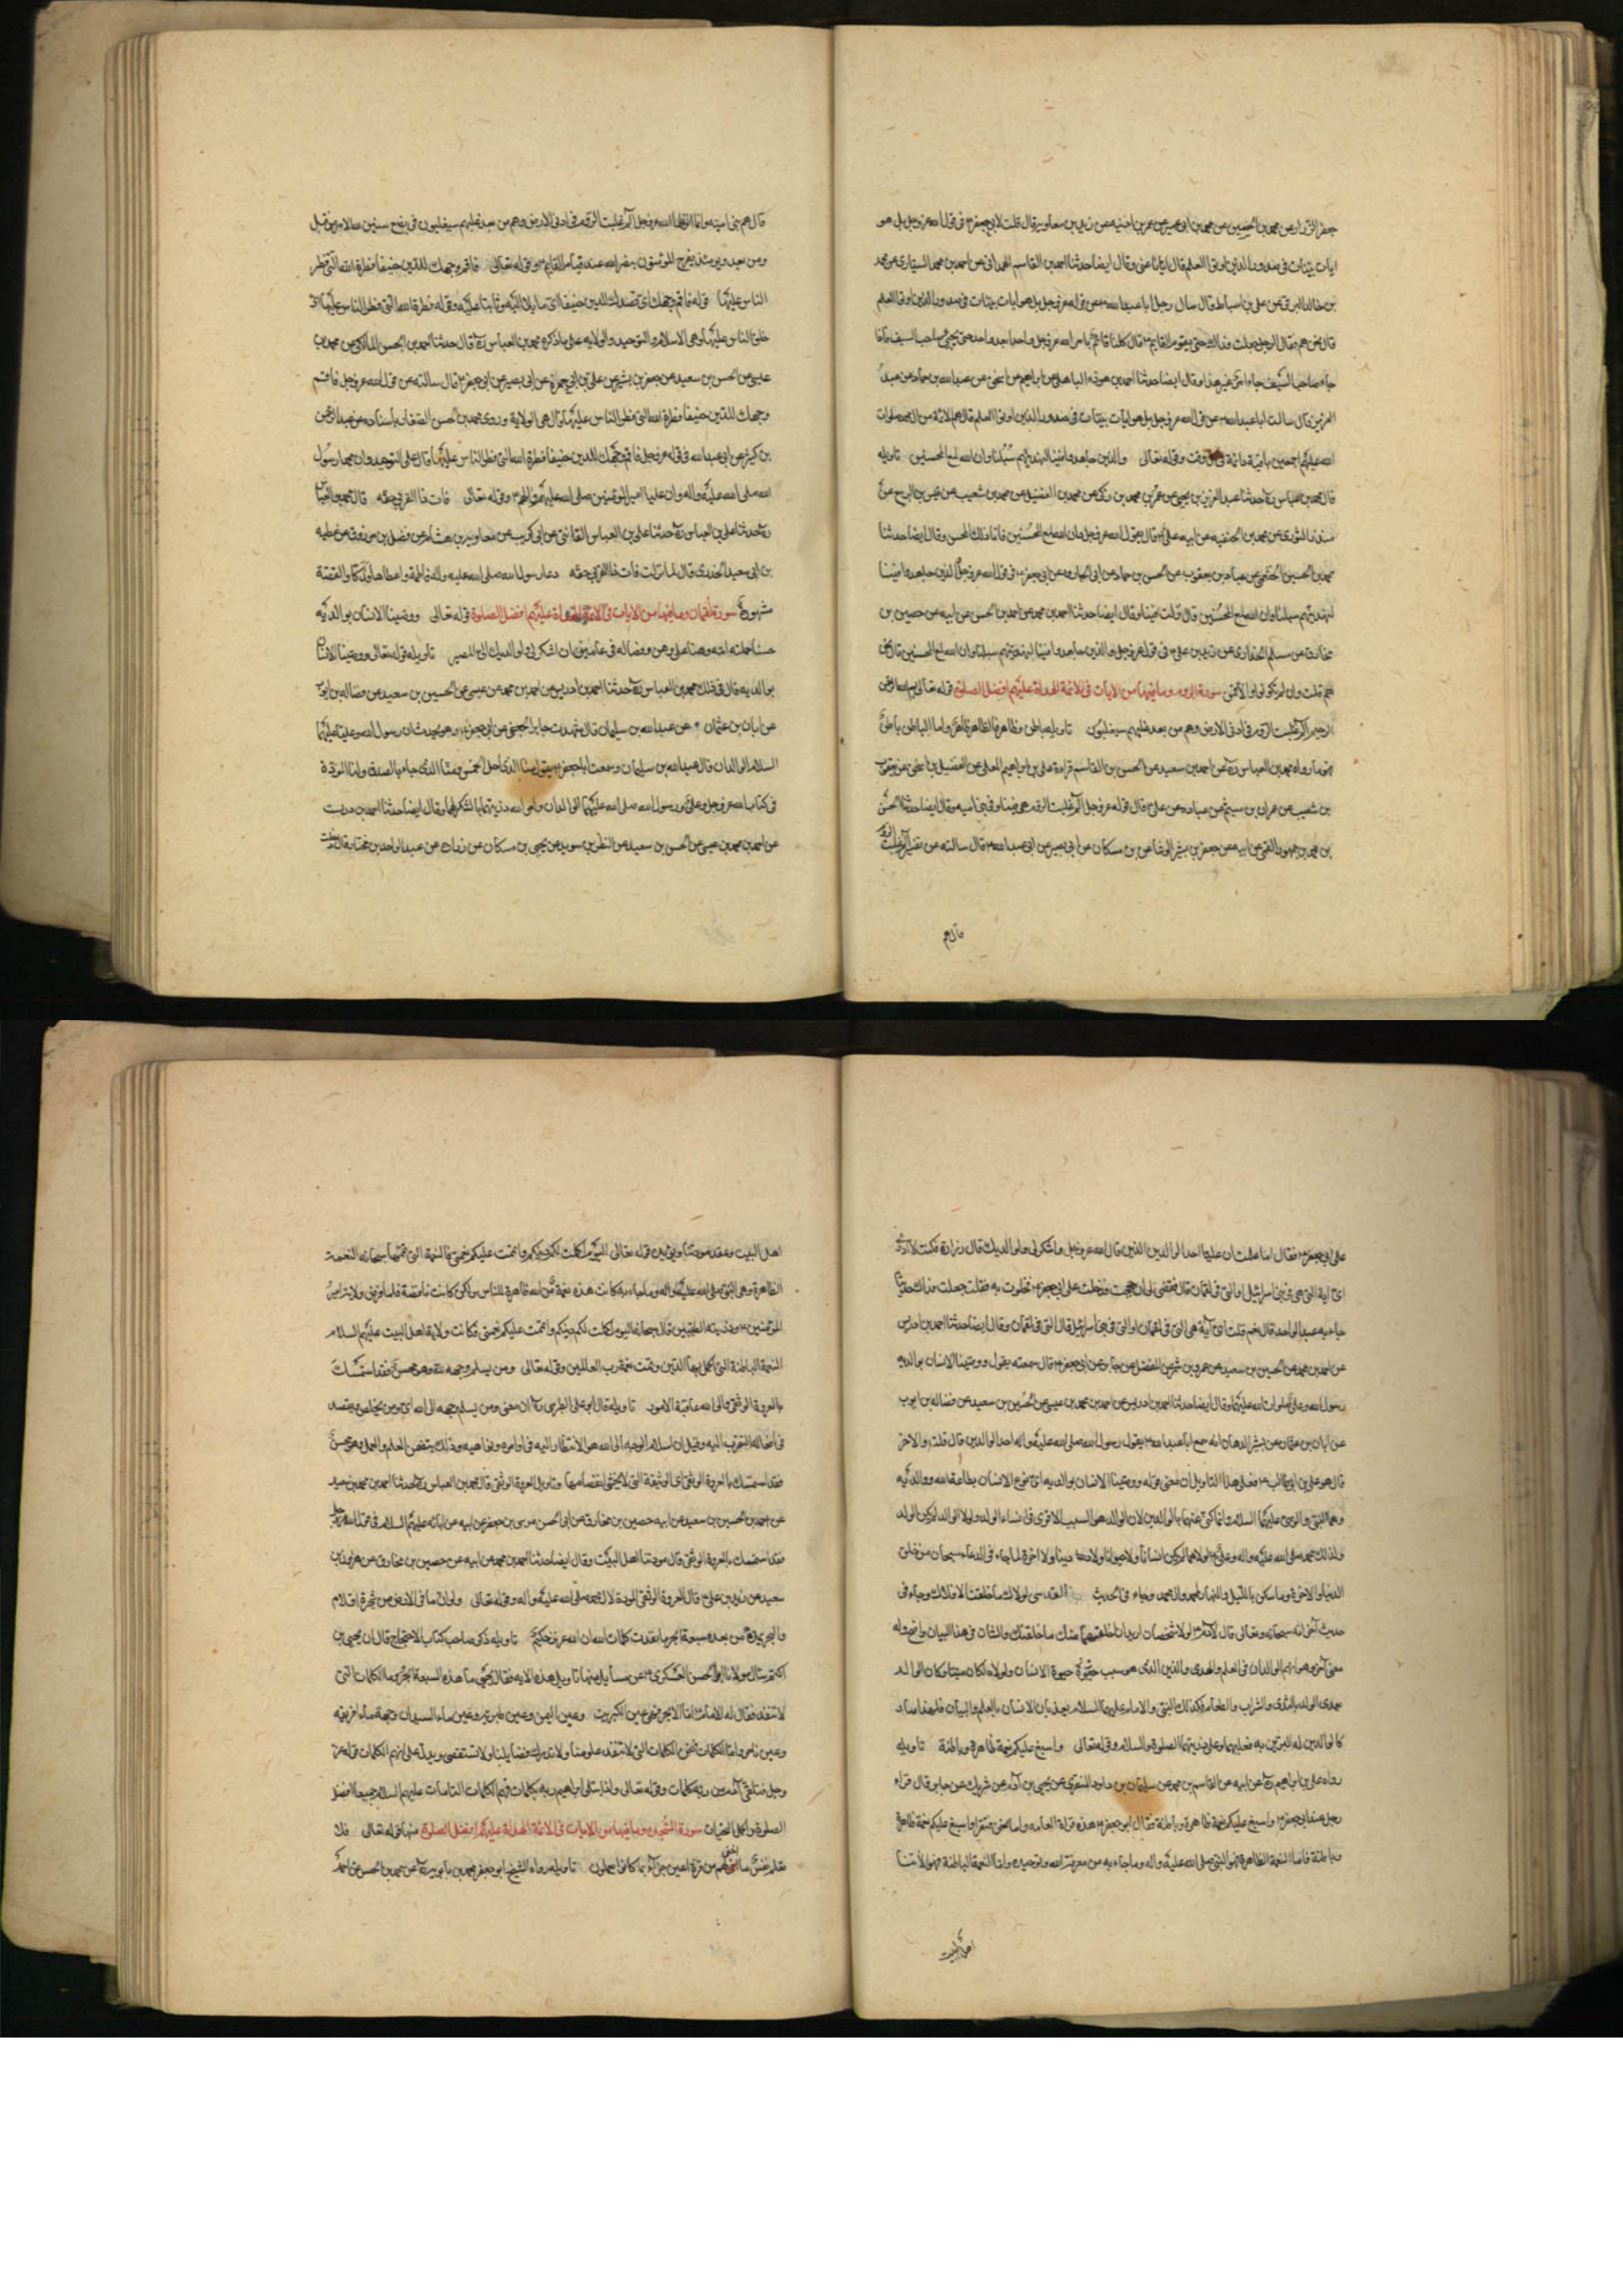 جعفر الرزاز عن محمد بن الحسين عن محمد بن ابى عمير عن عمر بن اذينه عن بريد بن معاوية قال قلت لابى جعفر ع فى قول الله عز وجل بل هو
ايات بينات فى صدور الذين اوتوا العلم قال ايانا عنى وقال ايضا حدثنا احمد بن القاسم الهمدانى عن احمد بن محمد السيارى عن محمد
بن خالد البرقى عن على بن اسباط قال سال رجل ابا عبد الله ع عن قوله عز وجل بل هو ايات بينات فى صدور الذين اوتوا العلم
قال نحن هم فقال الرجل جعلت فداك حتى يقوم القايم ع قال كلنا قائم بامر الله عز وجل واحدا بعد واحد حتى يجيئ صاحب السيف فاذا
جاء صاحب السيف جاء امر غير هذا وقال ايضا حدثنا احمد بن هوذه الباهلى عن ابراهيم بن اسحق عن عبد الله بن حماد عن عبد
العزيز قال سالت ابا عبد الله ع عن قول الله عز وجل بل هو ايات بينات فى صدور الذين اوتوا العلم قال هم الائمة من ال محمد صلوات
الله عليهم اجمعين باقية دائمة فى كل وقت وقوله تعالى والذين جاهدوا فينا لنهدينهم سبلنا وان الله لمع المحسنين تاويله
قال محمد بن عباس ره حدثنا عبد العزيز بن يحيى عن عمرو بن محمد بن زكى عن محمد بن الفضيل عن محمد بن شعيب عن قيس بن الربيع عن
منذر الثورى عن محمد بن الحنفيه عن ابيه على ع قال يقول الله عز وجل وان الله لمع المحسنين فانا ذلك المحسن وقال ايضا حدثنا
محمد بن الحسين الخثعمى عن عباد بن يعقوب عن الحسن بن حماد عن ابى الجارود عن ابى جعفر ع فى قول الله عز وجل والذين جاهدوا فينا
لنهدينهم سبلنا وان الله لمع المحسنين قال نزلت فينا وقال ايضا حدثنا احمد بن محمد عن احمد بن الحسن عن ابيه عن حصين بن
مخارق عن مسلم الحذاء عن زيد بن على ع فى قول الله عز وجل والذين جاهدوا فينا لنهدينهم سبلنا وان الله لمع المحسنين قال نحن
هم قلت وان لم تكونوا والا فمن سورة الروم وما فيها من الايات فى الائمة الهداة عليهم افضل الصلوة قوله تعالى بسم الله الرحمن
الرحيم الم غلبت الروم فى ادنى الارض وهم من بعد غلبهم سيغلبون تاويله باطن وظاهر فالظاهر ظاهر واما الباطن باطن
فهو ما رواه محمد بن العباس ره عن احمد بن سعيد عن الحسن بن القاسم قراءة على بن ابراهيم المعلى عن الفضيل بن اسحق عن يعقوب
بن شعيب عن عمران بن ميثم عن عبايه عن على ع قال قوله عز وجل الم غلبت الروم هى فينا وفى بنى اميه وقال ايضا حدثنا الحسن
بن محمد بن جمهور القمى عن ابيه عن جعفر بن بشير الوشا عن بن مسكان عن ابى بصير عن ابى عبد الله ع قال سالته عن تفسير الم غلبت الروم
قال هم
قال هم بنى اميه وانما انزلها الله عز وجل الم غلبت الروم فى ادنى الارض وهم من بعد غلبهم سيغلبون فى بضع سنين لله الامر من قبل
ومن بعد ويومئذ يفرح المؤمنون بنصر الله عند قيام القايم ع وقوله تعالى فاقم وجهك للدين حنيفا فطرة الله التى فطر
الناس عليها قوله فاقم وجهك اى تقصدك للدين حنيفا اى مايلا اليه وثابتا عليه وقوله فطرة الله التى فطر الناس عليها اى
خلق الناس عليها وهى الاسلام والتوحيد والولايه على ما ذكره محمد بن العباس ره قال حدثنا احمد بن الحسن المالكى عن محمد بن
عيسى عن الحسن بن سعيد عن جعفر بن بشير عن على بن ابى حمزة عن ابى بصير عن ابى جعفر ع قال سالته عن قول الله عز وجل فاقم
وجهك للدين حنيفا فطرة الله التى فطر الناس عليها قال هى الولاية وروى محمد بن الحسن الصفار باسناده عن عبد الرحمن
بن كثير عن ابى عبد الله فى قوله عز وجل فاقم وجهك للدين حنيفا فطرة الله التى فطر الناس عليها قال على التوحيد وان محمدا رسول
الله صلى الله عليه واله وان عليا امير المؤمنين صلى الله عليهم والهم وقوله تعالى فات ذا القربى حقه قال محمد بن العباس
ره حدثنا على بن العباس ره حدثنا على بن العباس القانعى عن ابى كريب عن معاوية بن هشام عن فضل بن مرزوق عن عطيه
بن ابى سعيد الخدرى قال لما نزلت فات ذا القربى حقه دعا رسول الله صلى الله عليه واله فاطمة واعطاها فدكا والقصة
مشهورة سورة لقمان وما فيها من الايات فى الائمة الهداة عليهم افضل الصلوة قوله تعالى ووصينا الانسان بوالديه
حسنا حملته امه وهنا على وهن وفصاله فى عامين ان اشكر لى ولوالديك الى المصير تاويله قوله تعالى ووصينا الانسان
بوالديه قال فى ذلك محمد بن العباس ره حدثنا احمد بن ادريس عن احمد بن محمد عن عيسى عن الحسين بن سعيد عن فضاله بن ايوب
عن ابان بن عثمان عن عبد الله بن سليمان قال شهدت جابر الجعفى عن ابى جعفر ع وهو يحدث ان رسول الله وعليا عليهما
السلام الوالدان قال عبد الله بن سليمان وسمعت ابا جعفر يقول منا الذى احل الخمس ومنا الذى جاء بالصدق ولنا المودة
فى كتاب الله عز وجل وعلى ورسول الله صلى الله عليهما الوالدان وامر الله ذريتهما بالشكر لهما وقال ايضا حدثنا احمد بن ادريس
عن احمد بن محمد بن عيسى عن الحسن بن سعيد عن النظر بن سويد عن يحيى بن مسكان عن زرارة عن عبد الواحد بن مختار قال دخلت
على ابى جعفر ع فقال اما علمت ان عليا احد الوالدين الذين قال الله عز وجل واشكر لى ولوالديك قال زرارة فكنت لا ادرى
اى اية التى هى فى بنى اسرائيل او التى فى لقمان قال فقضى لى ان حججت فدخلت على ابى جعفر ع فخلوت به فقلت جعلت فداك حديثا
جاء به عبد الواحد قال نعم قلت اى آية هى التى فى لقمان او التى فى بنى اسرائيل قال التى فى لقمان وقال ايضا حدثنا احمد بن ادريس
عن احمد بن محمد عن الحسين بن سعيد عن عمرو بن شمر عن المفضل عن جابر عن ابى جعفر ع قال سمعته يقول ووصينا الانسان بوالديه
رسول الله وعلى صلوات الله عليهما وقال ايضا حدثنا احمد بن ادريس عن احمد بن محمد بن عيسى عن الحسين بن سعيد عن فضاله بن ايوب
عن ابان بن عثمان عن بشير الدهان انه سمع ابا عبد الله ع يقول رسول الله صلى الله عليه واله احد الوالدين قال قلت والاخر
قال هو على بن ابى طالب ع فعلى هذا التاويل ان معنى قوله ووصينا الانسان بوالديه اى نوع الانسان بطاعة الله ووالديه
وهما النبى والوصى عليهما السلام وانما كنى عنهما بالوالدين لان الوالد هو السبب الاقوى فى انشاء الولد ولولا الوالد لم يكن الولد
ولذلك محمد صلى الله عليه واله وعلى ع لولاهما لم يكن انسانا ولا حيوانا ولا دنيا ولا اخرة لما جاء فى الدعاء سبحان من خلق
الدنيا والاخرة وما سكن بالليل والنهار لمحمد وال محمد وجاء فى الحديث القدسى لولاك ما خلقت الافلاك وجاء فى
حديث آخر انه سبحانه وتعالى قال لآدم ع لولا شخصان اريد ان اخلقهما منك ما خلقتك والشان فى هذا البيان واضح وله
معنى آخر وهو انهم الوالدان فى العلم والهدى والدين الذى هو سبب حيوة الانسان ولولاه لكان ميتا فكان الوالد
يغذى الولد بالغذى والشراب والطعام فكذلك النبى والامام عليهما السلام يغذيان الانسان بالعلم والبيان فلهذا صاد
كالوالدين له البرين به فعليهما وعلى ذريتهما الصلوة والسلام وقوله تعالى واسبغ عليكم نعمة ظاهرة وباطنة تاويله
رواه على بن ابراهيم ره عن ابيه عن القاسم بن محمد عن سليمان بن داود المنقرى عن يحيى بن آدم عن شريك عن جابر قال قراء
رجل عند ابى جعفر ع واسبغ عليكم نعمة ظاهرة وباطنة فقال ابو جعفر ع هذه قراءة العامه واما نحن فنقرا واسبغ عليكم نعمة ظاهرة
وباطنة فاما النعمة الظاهرة فهو النبى صلى الله عليه واله وما جاء به من معرفة الله وتوحيده واما النعمة الباطنة فهو لايتنا
اهل البيت
اهل البيت وعقد مودتنا وفى قوله تعالى اليوم اكملت لكم دينكم واتممت عليكم نعمتى فالنعمة التى اتمها سبحانه النعمة
الظاهرة وهى النبى صلى الله عليه واله وما جاء به كانت هذه نعمة من الله ظاهرة للناس ولكن كانت ناقصة فلما فرض ولاية امير
المؤمنين ع وذريته الطيبين قال سبحانه اليوم اكملت لكم دينكم واتممت عليكم نعمتى فكانت ولاية اهل البيت عليهم السلام
النعمة الباطنة التى اكمل بها الدين وتمت نعمة رب العالمين وقوله تعالى ومن يسلم وجهه لله وهو محسن فقد استمسك
بالعروة الوثقى والى الله عاقبة الامور تاويله قال ابو على الطبرسى ره ان معنى ومن يسلم وجهه الى الله اى ومن يخلص ويقصد
فى افعاله التقرب اليه وقيل ان اسلام الوجه الى الله هو الانقطاع اليه فى اوامره ونواهيه وذلك يتضمن العلم والعمل وهو محسن
فقد استمسك بالعروة الوثقى اى الوثيقة التى لا يخشى انفصامها وتاويل العروة الوثقى قال محمد بن العباس ره حدثنا احمد بن محمد بن سعيد
عن احمد بن الحسين بن سعيد عن ابيه حصين بن مخارق عن ابى الحسن موسى بن جعفر عن ابيه عن ابائه عليهم السلام فى قوله عز وجل
فقد استمسك بالعروة الوثقى قال مودتنا اهل البيت وقال ايضا حدثنا احمد بن محمد عن ابيه عن حصين بن مخارق عن هرون بن
سعيد عن زيد بن على ع قال العروة الوثقى المودة لال محمد صلى الله عليه واله وقوله تعالى ولو ان ما فى الارض من شجرة اقلام
والبحر يمده من بعده سبعة ابحر ما نفدت كلمات الله ان الله عزيز حكيم تاويله ذكره صاحب كتاب الاحتجاج قال ان يحيى بن
اكثم سال مولانا ابو الحسن العسكرى ع عن مسايل منها تاويل هذه الايه فقال يحيى ما هذه السبعة ابحر وما الكلمات التى
لا تنفد فقال له الامام ع اما الابحر فهى عين الكبريت وعين اليمن وعين طبريه وعين ماء السبدان وجمة ماء افريقيه
وعين ناس واما الكلمات فنحن الكلمات التى لا تنفد علومنا ولا تدرك فضايلنا ولا تستقصى ويدل على انهم الكلمات قوله عز
وجل فتلقى آدم من ربه كلمات وقوله تعالى واذ ابتلى ابراهيم ربه بكلمات فهم الكلمات التامات عليهم السلام جميعا افضل
الصلوة واكمل التحيات سورة السجدة وما فيها من الايات فى الائمة الهداة عليهم افضل الصلوة منها قوله تعالى فلا
تعلم نفس ما اخفى لهم من قرة اعين جزآء بما كانوا يعملون تاويله رواه الشيخ ابو جعفر محمد بن بابويه ره عن محمد بن الحسن عن احمد